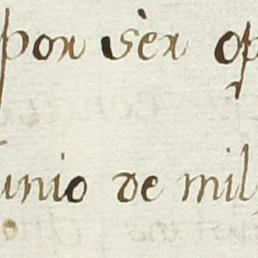 por sèr op
unio de mil